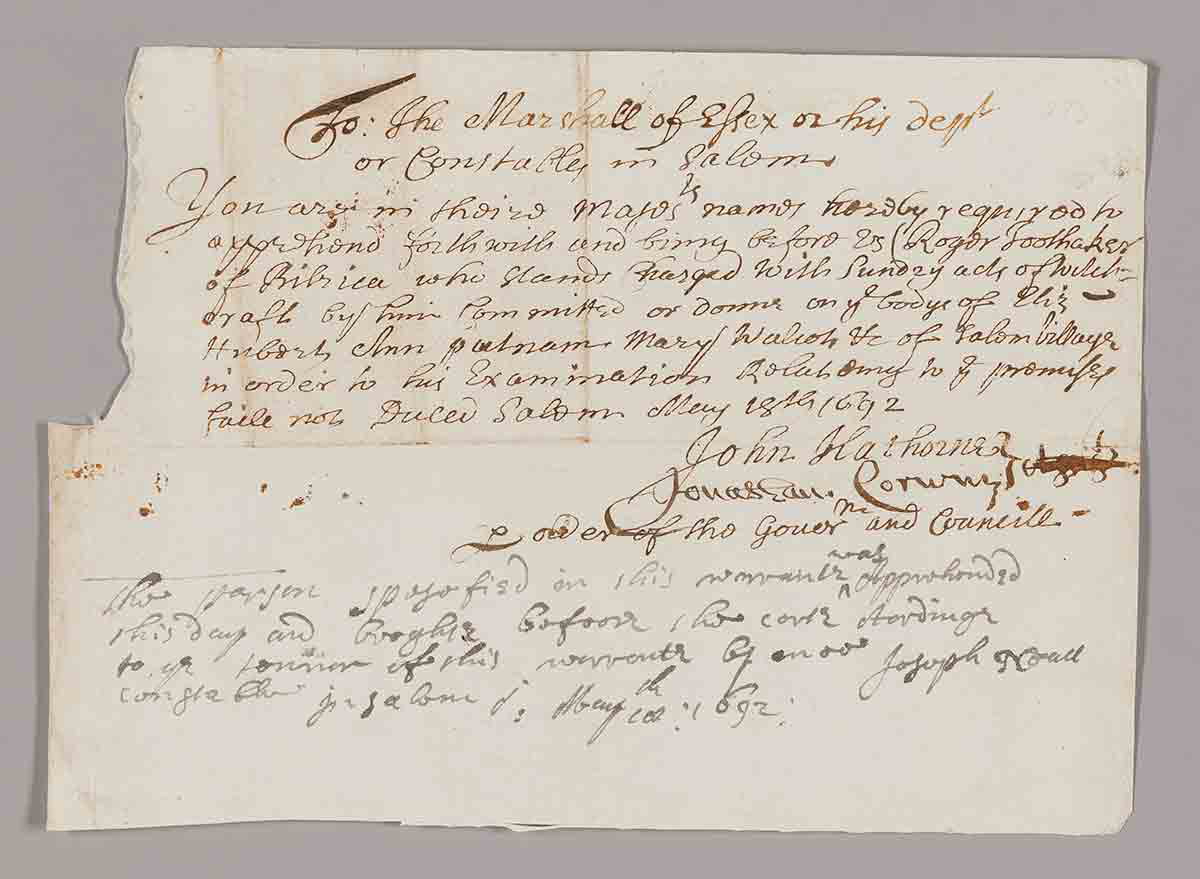 To: The Marshall of Essex or his dept
or Constables in Salem
You are in theire Majests names hereby required to
apprehend forthwith and bring before us (Roger Toothaker
of Bilrica who stands Charged with Sundry acts of Witch-
craft by him Committed or donne on ye bodys of Eliz
Hubert Ann putnam Mary Walcot &c of Salem Village
in order to his Examination Relateing to ye premises
faile not Dated Salem May 18th 1692
John Hathorne
Jonathan. Corwin
P order of the Governr and Councill
the parson spesefied in this warrante was Apprehended
this day and broghte befoore the corte Acordinge
to ye tennor of this warrante by mee Joseph Neall
constable in Salem May 18th: 1692: